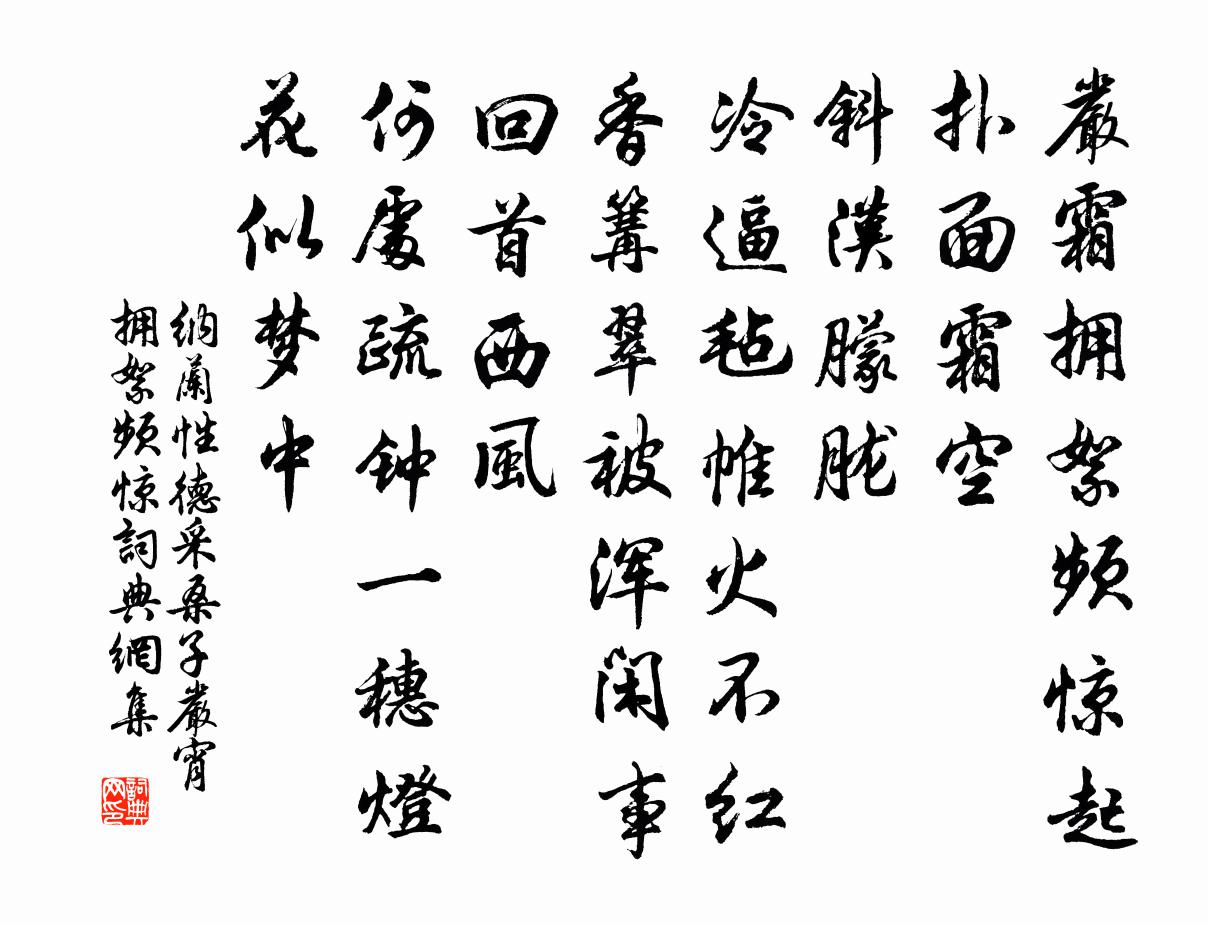 嚴霜拥絮频惊起
扑面霜空
斜漢朦胧
冷逼毡帷火不红
香篝翠被浑閑事
回首西風
何處疏钟
一穗燈花似梦中
纳蘭性德采桑子嚴宵
拥絮频惊詞典網集
詞典网印